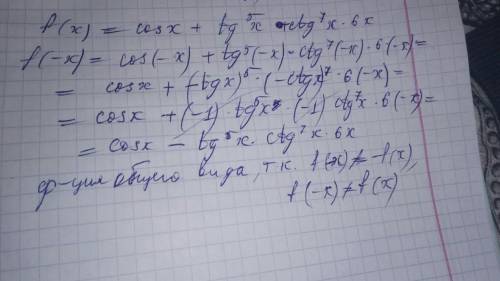 f(x) = cosx + tg⁵x · ctg⁷x · 6x
f(-x) = cos(-x) + tg⁵(-x) · ctg⁷(-x) · 6(-x) =
= cosx + (-tgx)⁵ · (-ctgx)⁷ · 6(-x) =
= cosx + (-1) · tg⁵x · (-1) ctg⁷x · 6(-x) =
= cosx - tg⁵x · ctg⁷x · 6x
ф-ция общего вида, т.к. f(-x) ≠ -f(x),
f(-x) ≠ f(x)